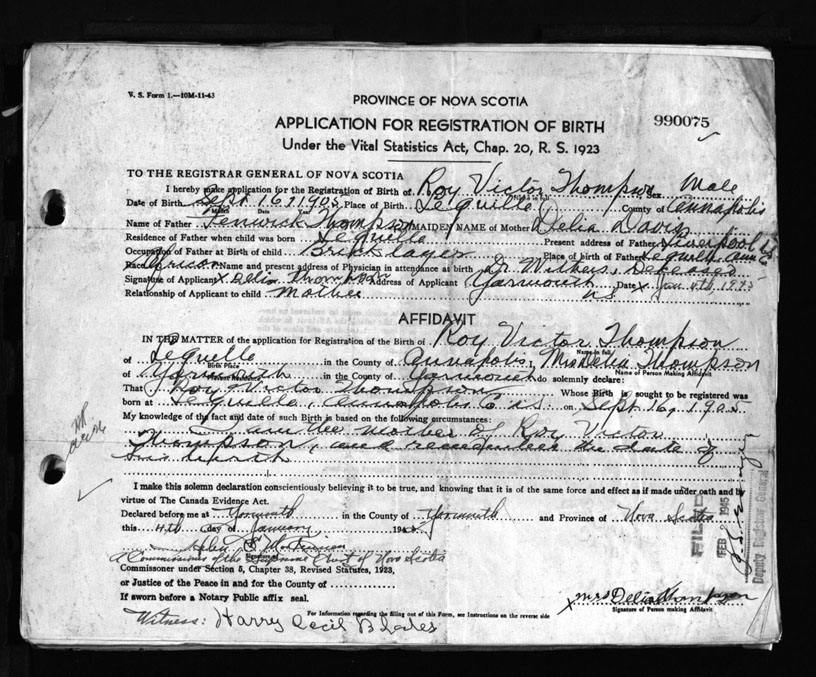 V. S. Form 1.—10M-11-43
PROVINCE OF NOVA SCOTIA
990075
APPLICATION FOR REGISTRATION OF BIRTH
Under the Vital Statistics Act, Chap. 20, R. S. 1923
TO THE REGISTRAR GENERAL OF NOVA SCOTIA
I hereby make application for the Registration of Birth of Roy Victor Thompson Sex Male
Date of Birth Sept 16, 1905 Place of Birth Lequille County of Annapolis
Name of Father Fenwick Thompson MAIDEN NAME of Mother Delia Davis
Residence of Father when child was born Lequille Present address of Father Liverpool
Occupation of Father at Birth of child Brick layer Place of birth of Father Lequille
Race African Name and present address of Physician in attendance at birth Dr Withers, Deceased
Signature of Applicant x Delia Thompson Address of Applicant Yarmouth NS Date Jan 4th, 1945
Relationship of Applicant to child Mother
AFFIDAVIT
IN THE MATTER of the application for Registration of the Birth of Roy Victor Thompson
of Lequille in the County of Annapolis, Mrs Delia Thompson
Birth Place Name in full Name of Person Making Affidavit
of Yarmouth in the County of Yarmouth do solemnly declare:
That Roy Victor Thompson Whose Birth is sought to be registered was
born at Lequille Annapolis Co NS on Sept 16, 1905
My knowledge of the fact and date of such Birth is based on the following circumstances:
I am the mother of Roy Victor
Thompson, and remember the date of
his birth
I make this solemn declaration conscientiously believing it to be true, and knowing that it is of the same force and effect as if made under oath and by
virtue of The Canada Evidence Act.
Declared before me at Yarmouth in the County of Yarmouth and Province of Nova Scotia
this 4th day of January, 1945
Helen S
A Commissioner of the Supreme Court of Nova Scotia
Commissoner under Section 5, Chapter 38, Revised Statutes, 1923,
or Justice of the Peace in and for the County of
If sworn before a Notary Public affix seal.
x Mrs Delia Thompson
Signature of Person making Affidavit
For Information regarding the filling out of this Form, see Instructions on the reverse side
Witness: Harry Cecil Rhodes
FILED
FEB 1945
Deputy Registrar General